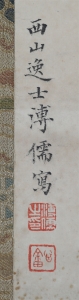 西山逸士溥儒寫